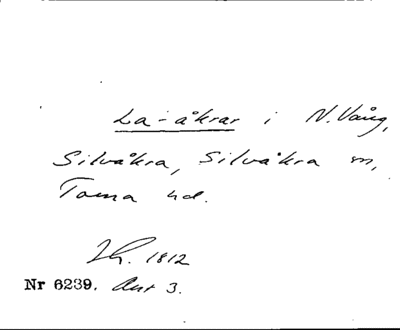 La-åkrar i N. Vång,
Silvåkra, Silvåkra sn,
Torna hd.
1812
Nr 6239. Akt 3.